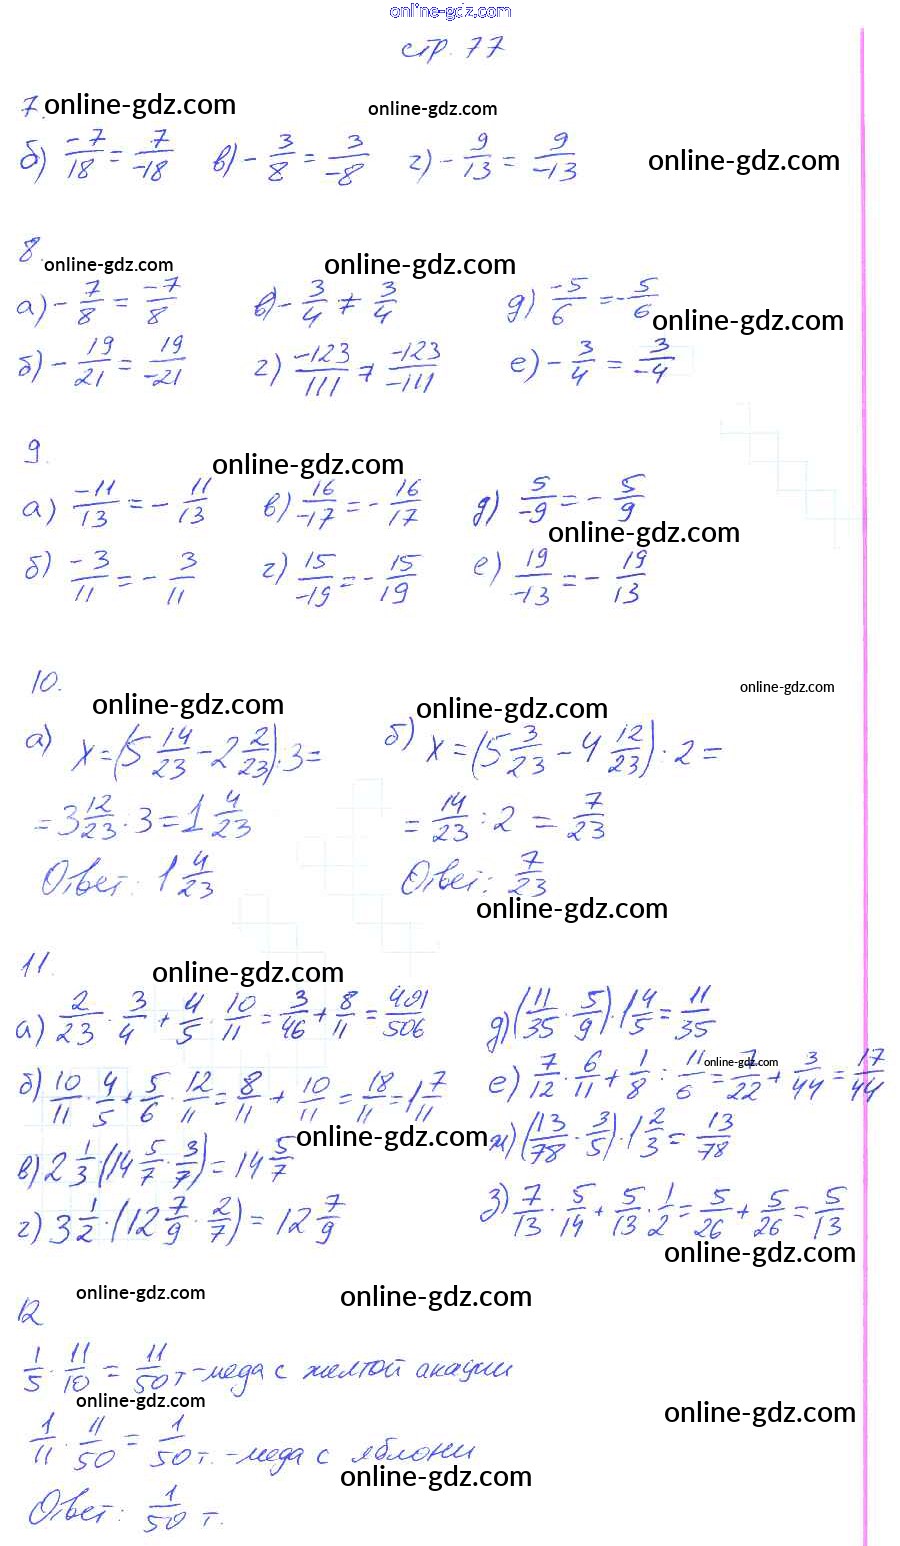 online-gdz.com
стр. 77
7. online-gdz.com online-gdz.com
б) -7/18 = 7/-18 в) - 3/8 = 3/-8 г) - 9/13 = 9/-13 online-gdz.com
8. online-gdz.com online-gdz.com
а) - 7/8 = -7/8 в) - 3/4 ≠ 3/4 д) -5/6 = - 5/6 online-gdz.com
б) - 19/21 = 19/-21 г) -123/111 ≠ -123/-111 е) - 3/4 = 3/-4
9. online-gdz.com
а) -11/13 = - 11/13 в) 16/-17 = - 16/17 д) 5/-9 = - 5/9
online-gdz.com
б) -3/11 = - 3/11 г) 15/-19 = - 15/19 е) 19/-13 = - 19/13
10. online-gdz.com online-gdz.com online-gdz.com
а) x = (5 14/23 - 2 2/23) · 3 = б) x = (5 3/23 - 4 12/23) : 2 =
= 3 12/23 · 3 = 1 4/23 = 14/23 : 2 = 7/23
Ответ: 1 4/23 Ответ: 7/23
online-gdz.com
11. online-gdz.com
а) 2/23 · 3/4 + 4/5 · 10/11 = 3/46 + 8/11 = 401/506 д) (11/35 · 5/9) · 1 4/5 = 11/35
б) 10/11 · 4/5 + 5/6 · 12/11 = 8/11 + 10/11 = 18/11 = 1 7/11 е) 7/12 · 6/11 + 1/8 : 11/6 = 7/22 + 3/44 = 17/44 online-gdz.com
online-gdz.com
в) 2 1/3 · (14 5/7 · 3/7) = 14 5/7 ж) (13/78 · 3/5) · 1 2/3 = 13/78
г) 3 1/2 · (12 7/9 · 2/7) = 12 7/9 з) 7/13 · 5/14 + 5/13 · 1/2 = 5/26 + 5/26 = 5/13
online-gdz.com
12 online-gdz.com online-gdz.com
1/5 · 11/10 = 11/50 т - меда с желтой акации
online-gdz.com online-gdz.com
1/11 · 11/50 = 1/50 т. - меда с яблони
online-gdz.com
Ответ: 1/50 т.